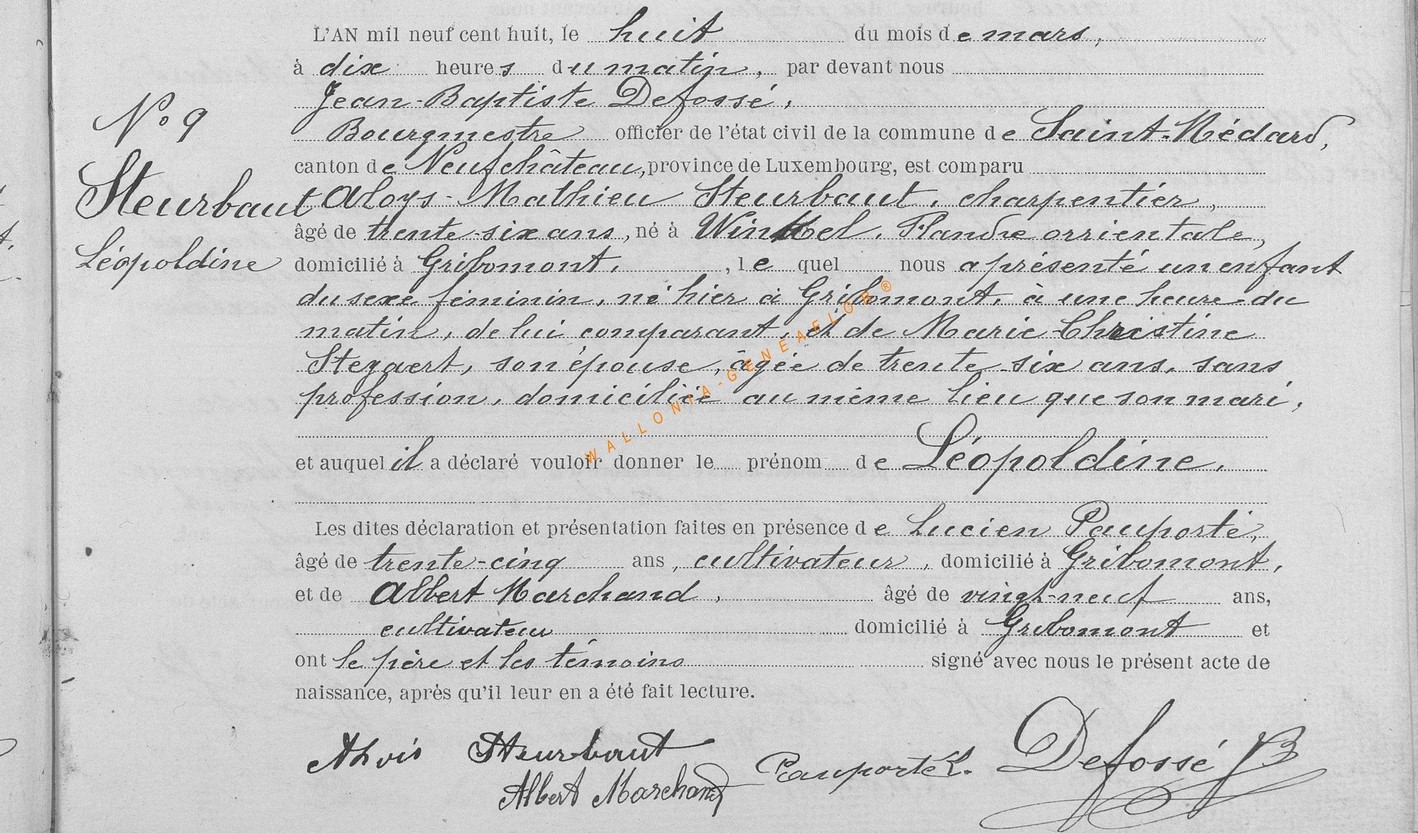 L'AN mil neuf cent huit, le huit du mois de mars,
à dix heures du matin, par devant nous
Jean-Baptiste Defossé,
Bourgmestre officier de l'état civil de la commune de Saint-Médard,
canton de Neufchâteau, province de Luxembourg, est comparu
Aloys-Mathieu Steurbaut, charpentier,
âgé de trente-six ans, né à Winkel, Flandre orrientale,
domicilié à Gribomont, , le quel nous a présenté un enfant
du sexe féminin, né hier à Gribomont, à une heure du
matin, de lui comparant, et de Marie Christine
Stegaert, son épouse, âgée de trente-six ans, sans
profession, domiciliée au même lieu que son mari,
et auquel il a déclaré vouloir donner le prénom de Léopoldine.
Les dites déclaration et présentation faites en présence de Lucien Pauporté,
âgé de trente-cinq ans, cultivateur, domicilié à Gribomont,
et de Albert Marchand, âgé de vingt-neuf ans,
cultivateur domicilié à Gribomont et
ont le père et les témoins signé avec nous le présent acte de
naissance, après qu'il leur en a été fait lecture.
No 9
Steurbaut
Léopoldine
Aloïs Steurbaut
Albert Marchand
Pauporté L.
Defossé JB
WALLONIA-GENEAFLOR®